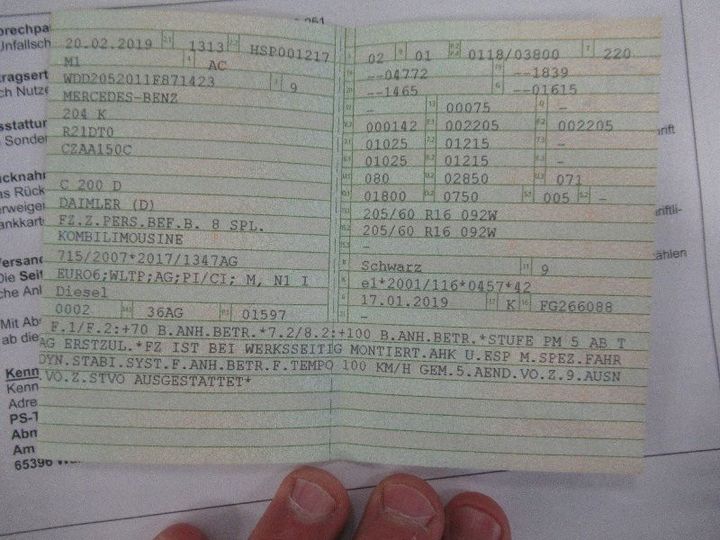 20.02.2019 1313 HSP001217
M1 AC
WDD2052011F871423 9
MERCEDES-BENZ
204 K
R21DT0
CZAA150C
C 200 D
DAIMLER (D)
FZ.Z.PERS.BEF.B. 8 SPL.
KOMBILIMOUSINE
715/2007*2017/1347AG
EURO6;WLTP;AG;PI/CI; M, N1 I
Diesel
0002 36AG 01597
02 01 0118/03800 220
--04772 --1839
--1465 --01615
- 00075 -
000142 002205 002205
01025 01215 -
01025 01215 -
080 02850 071
01800 0750 005 -
205/60 R16 092W
205/60 R16 092W
-
Schwarz 9
e1*2001/116*0457*42
17.01.2019 K FG266088
-
F.1/F.2:+70 B.ANH.BETR.*7.2/8.2:+100 B.ANH.BETR.*STUFE PM 5 AB T
AG ERSTZUL.*FZ IST BEI WERKSSEITIG MONTIERT.AHK U.ESP M.SPEZ.FAHR
DYN.STABI.SYST.F.ANH.BETR.F.TEMPO 100 KM/H GEM.5.AEND.VO.Z.9.AUSN
VO.Z.STVO AUSGESTATTET*
Unfallsch
Die Seit
che Anl
Mit Abs
ab die
Kenn
Kenn
Adre
PS-T
Abn
Am
65396